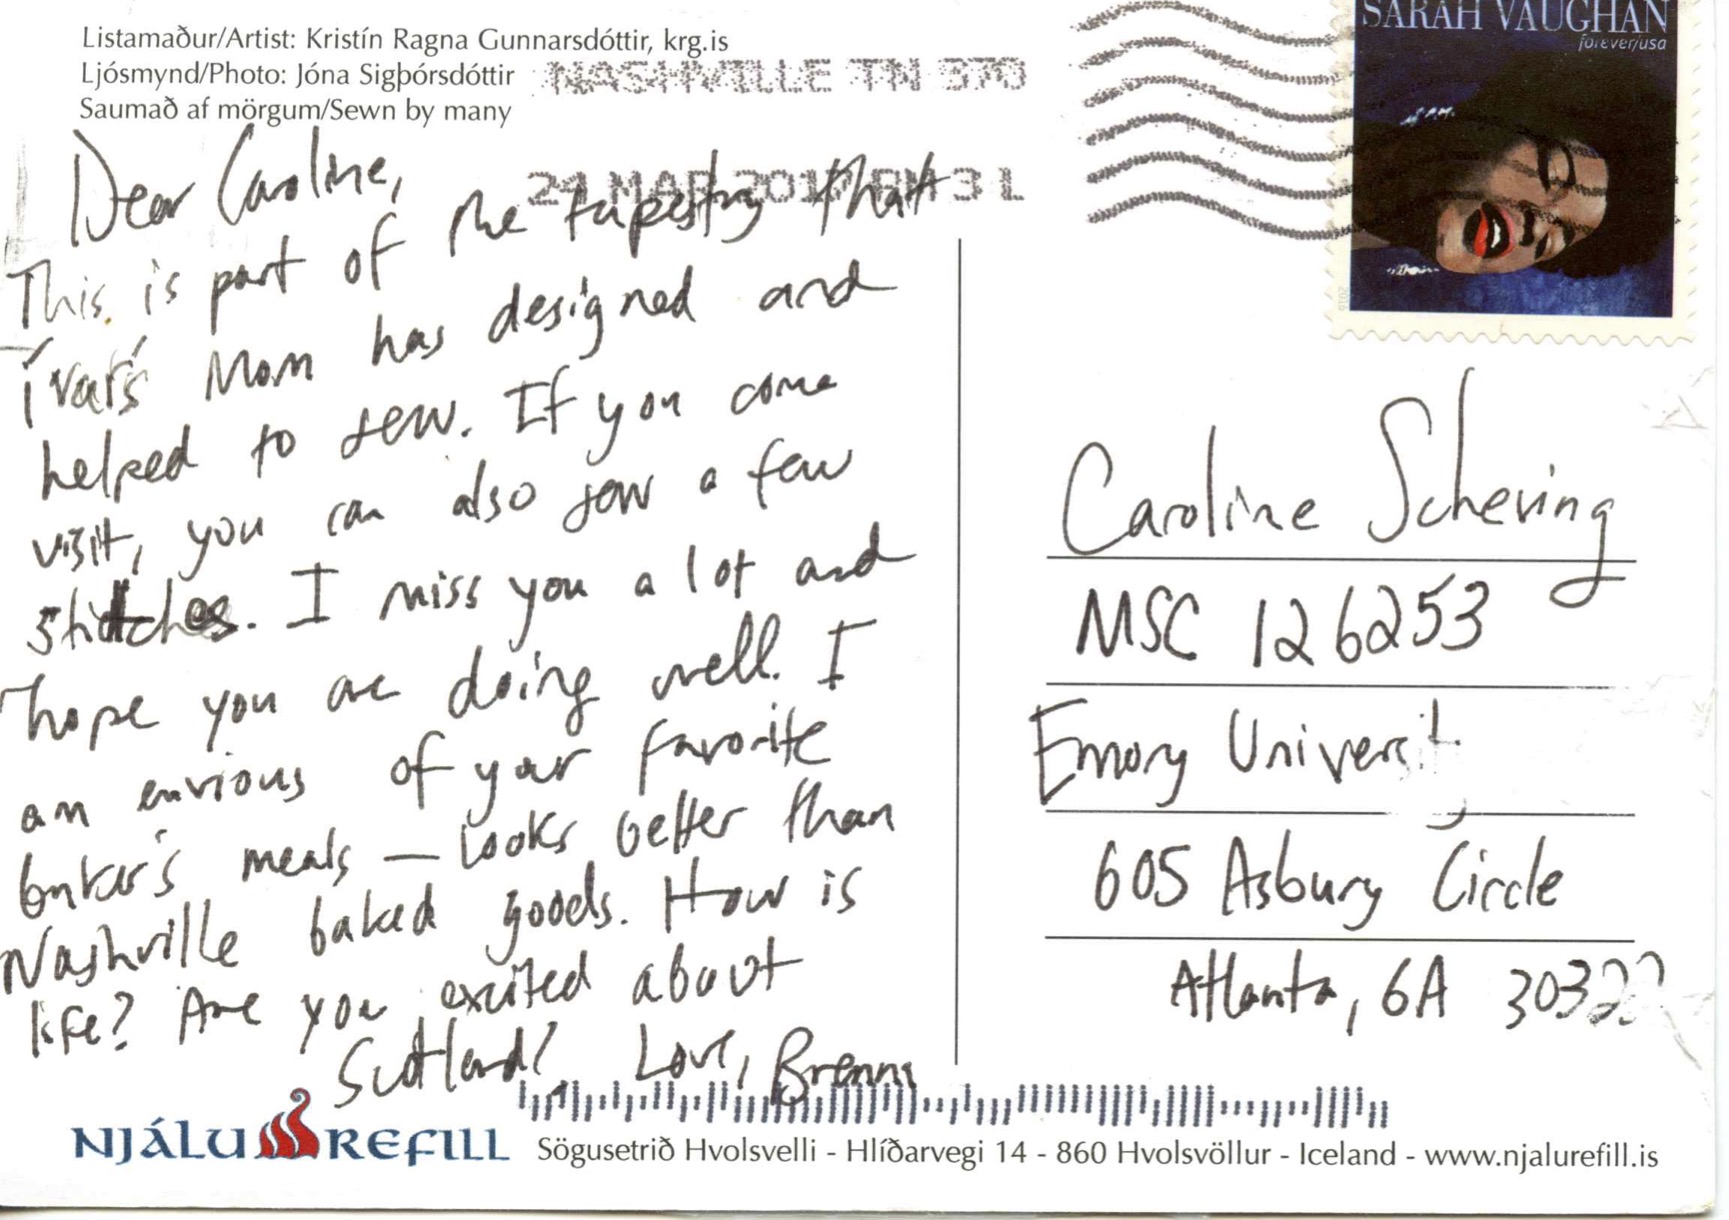 Listamaður/Artist: Kristín Ragna Gunnarsdóttir, krg.is
Ljósmynd/Photo: Jóna Sigþórsdóttir
Saumað af mörgum/Sewn by many
NASHVILLE TN 370
24 MAR 2017 PM 3 L
SARAH VAUGHAN
forever/usa
2016
Dear Caroline,
This is part of the tapestry that
Ívar's Mom has designed and
helped to sew. If you come
visit, you can also sew a few
stitches. I miss you a lot and
hope you are doing well. I
am envious of your favorite
meals — looks better than
Nashville baked goods. How is
life? Are you excited about
Scotland? Love, Brenna
Caroline Scheving
MSC 126253
Emory University
605 Asbury Circle
Atlanta, GA 30322
NJÁLUREFILL
Sögusetrið Hvolsvelli - Hlíðarvegi 14 - 860 Hvolsvöllur - Iceland - www.njalurefill.is